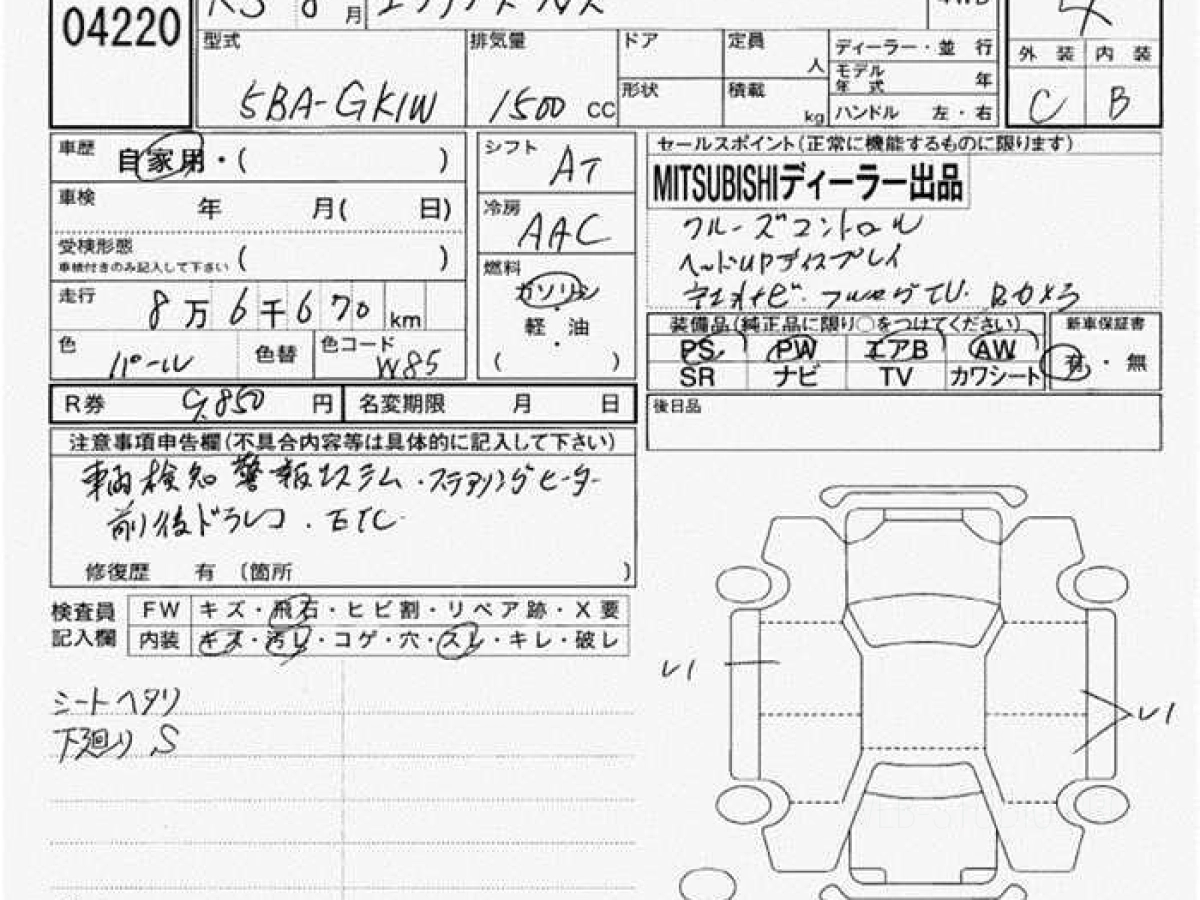 04220
R3 8月 エクリプスクロス 4WD 4
型式 排気量 ドア 定員 人 ディーラー・並行 外装 内装
5BA-GK1W 1500 cc 形状 積載 kg モデル年式 年 C B
ハンドル 左・右
車歴 自家用・( )
車検 年 月( 日)
受検形態 ( )
車検付きのみ記入して下さい
走行 8万6千670km
色 パール 色替 色コード W85
シフト AT
冷房 AAC
燃料 ガソリン
軽・油
( )
セールスポイント(正常に機能するものに限ります)
MITSUBISHIディーラー出品
クルーズコントロール
ヘッドUPディスプレイ
社外ナビ.フルセグTV.Bカメラ
装備品(純正品に限り○をつけてください) 新車保証書
PS PW エアB AW 有・無
SR ナビ TV カワシート
R券 9.850円 名変期限 月 日
後日品
注意事項申告欄(不具合内容等は具体的に記入して下さい)
車両検知警報システム.ステアリングヒーター
前後ドラレコ.ETC
修復歴 有 〔箇所 〕
検査員 FW キズ・飛石・ヒビ割・リペア跡・X要
記入欄 内装 キズ・汚レ・コゲ・穴・スレ・キレ・破レ
シートヘタリ
下廻りS